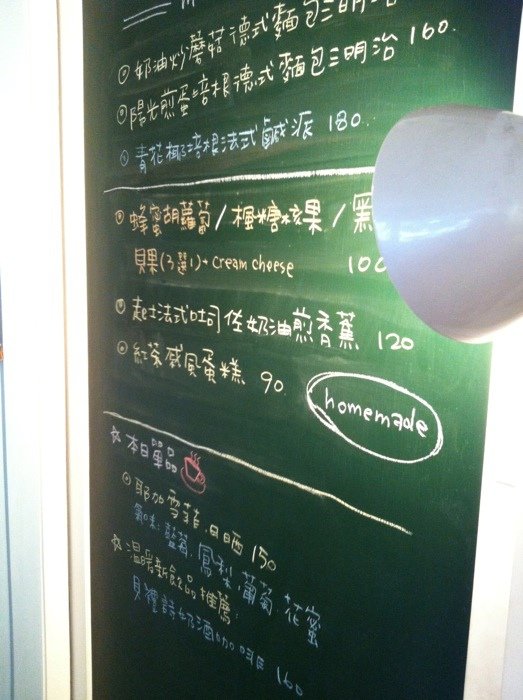 奶油炒蘑菇德式麵包三明治
陽光煎蛋培根德式麵包三明治 160.
青花椰培根法式鹹派 180.
蜂蜜胡蘿蔔/楓糖核果/黑
貝果(3選1)+cream cheese 100
起士法式吐司佐奶油煎香蕉 120
紅茶戚風蛋糕 90.
homemade
☆本日單品
耶加雪菲.日晒 150
氣味:藍莓.鳳梨.葡萄.花蜜
☆溫暖新飲品推薦:
貝禮詩奶酒咖啡 160